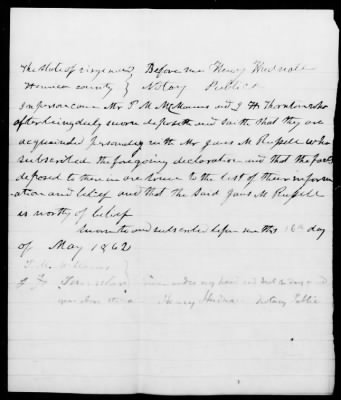 The State of virginia } Before me Henry
Henrico county } Notary Public
in person came Mr T. M. McManus and J H Thornton who
after being duly sworn deposeth and saith that they are
acquainted personaly with Mr Jams M Russell who
subscribed the foregoing declaration and that the facts
deposed to therein are true to the best of their inform
ation and belief and that the said Jams M Russell
is worthy of belief
Sworn to and subscribed before me this 16th day
of May 1862
given under my hand and seal the day and
year above Henry Notary Public